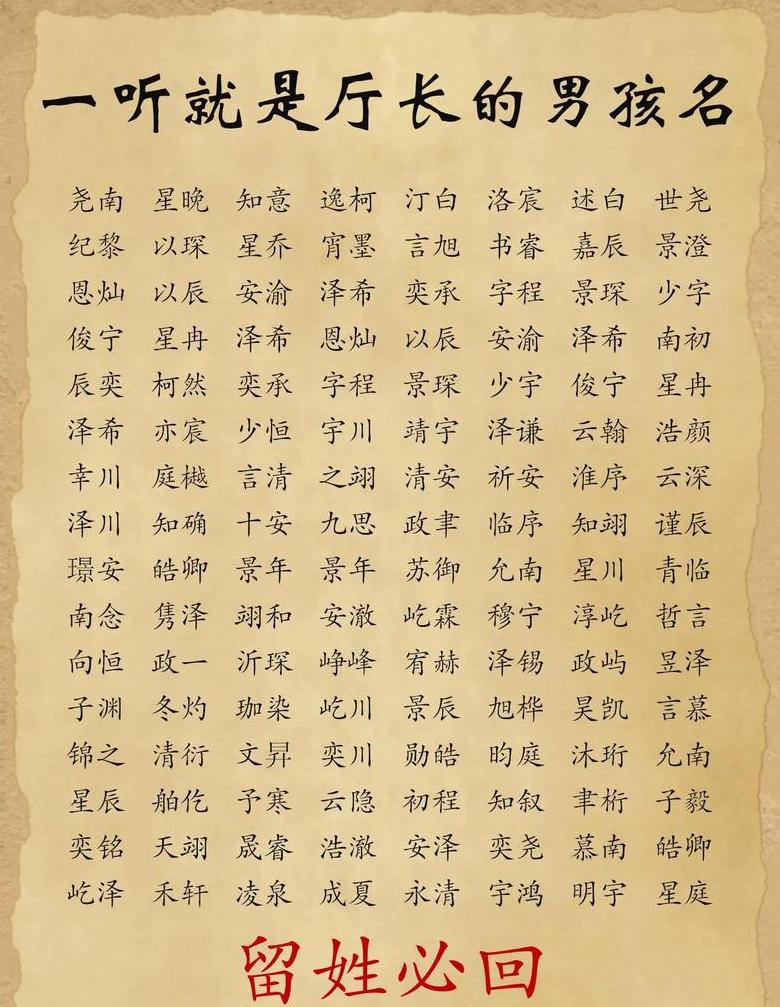 一听就是厅长的男孩名
尧南 星晚 知意 逸柯 汀白 洛宸 述白 世尧
纪黎 以琛 星乔 宵墨 言旭 书睿 嘉辰 景澄
恩灿 以辰 安渝 泽希 奕承 字程 景琛 少字
俊宁 星冉 泽希 恩灿 以辰 安渝 泽希 南初
辰奕 柯然 奕承 字程 景琛 少宇 俊宁 星冉
泽希 亦宸 少恒 宇川 靖宇 泽谦 云翰 浩颜
幸川 庭樾 言清 之翊 清安 祈安 淮序 云深
泽川 知确 十安 九思 政聿 临序 知翊 谨辰
璟安 皓卿 景年 景年 苏御 允南 星川 青临
南念 隽泽 翊和 安澈 屹霖 穆宁 淳屹 哲言
向恒 政一 沂琛 峥峰 宥赫 泽锡 政屿 昱泽
子渊 冬灼 珈染 屹川 景辰 旭桦 昊凯 言慕
锦之 清衍 文昇 奕川 勋皓 昀庭 沐珩 允南
星辰 舶仡 予寒 云隐 初程 知叙 聿桁 子毅
奕铭 天翊 晟睿 浩澈 安泽 奕尧 慕南 皓卿
屹泽 禾轩 凌泉 成夏 永清 宇鸿 明宇 星庭
留姓必回